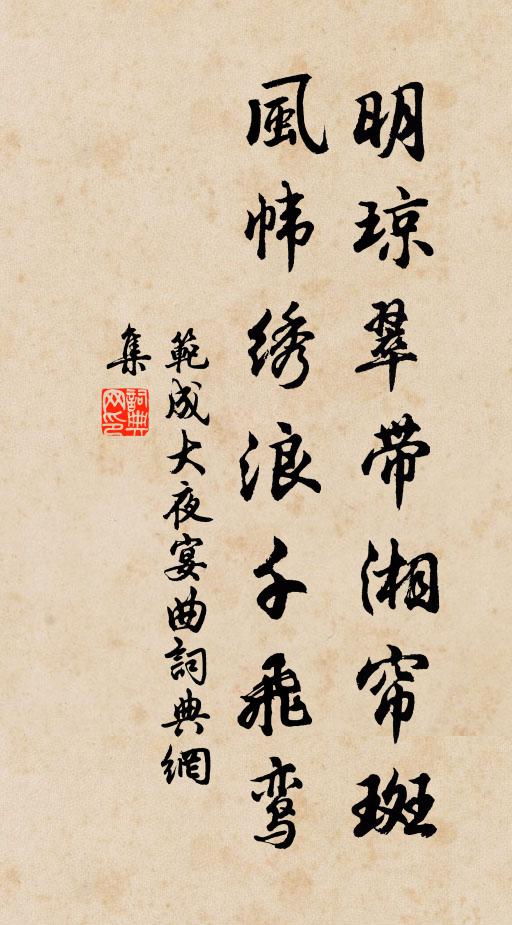 明琼翠带湘帘斑
風帏绣浪千飛鸾
範成大夜宴曲詞典網
集
詞典网印